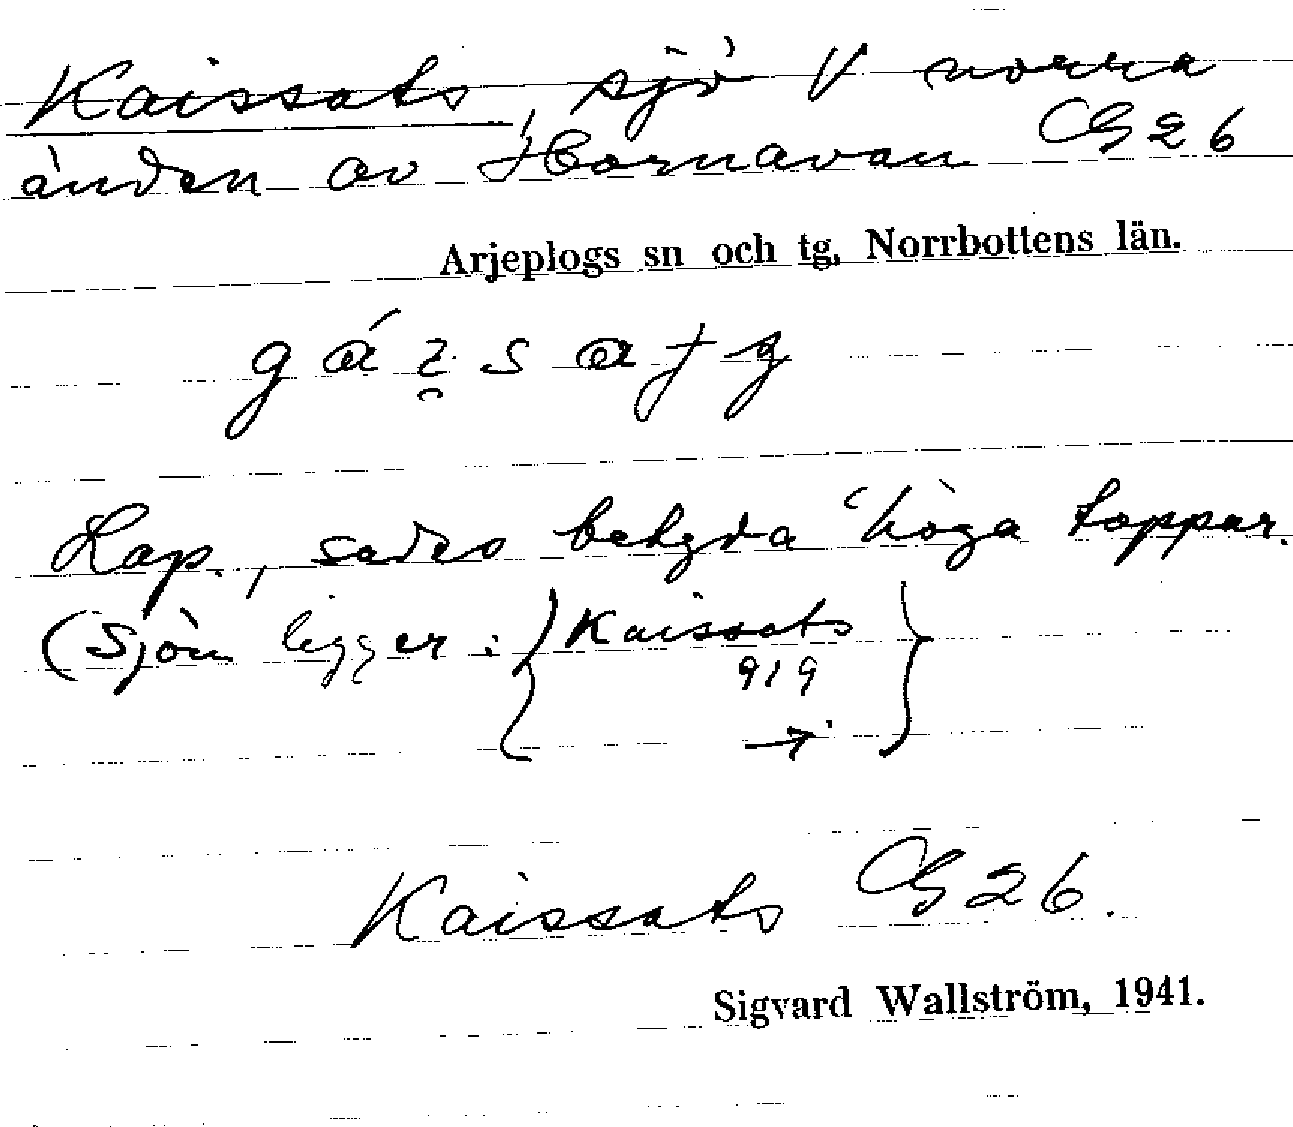 Kaissats, sjö V norra
änden av Hornavan GS 26
Arjeplogs sn och tg, Norrbottens län.
Lap., sades betyda 'höga toppar.
(Sjön ligger: { Kaissats }
919
→
Kaissats GS 26.
Sigvard Wallström, 1941.